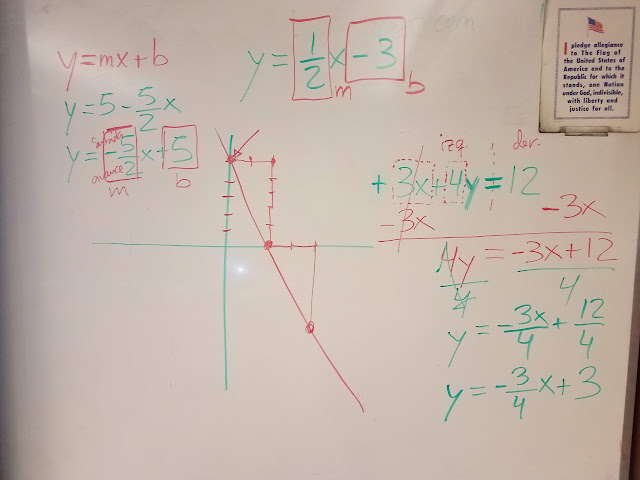 y=mx+b
y=5-5/2x
y=-5/2x+5
avance
m
b
y=1/2x-3
m
b
izq
der.
+3x+4y=12
-3x
-3x
4y=-3x+12
4
4
y=-3x/4+12/4
y=-3/4x+3
I pledge allegiance
to The Flag of
the United States of
America and to the
Republic for which it
stands, one Nation
under God, indivisible,
with liberty and
justice for all.